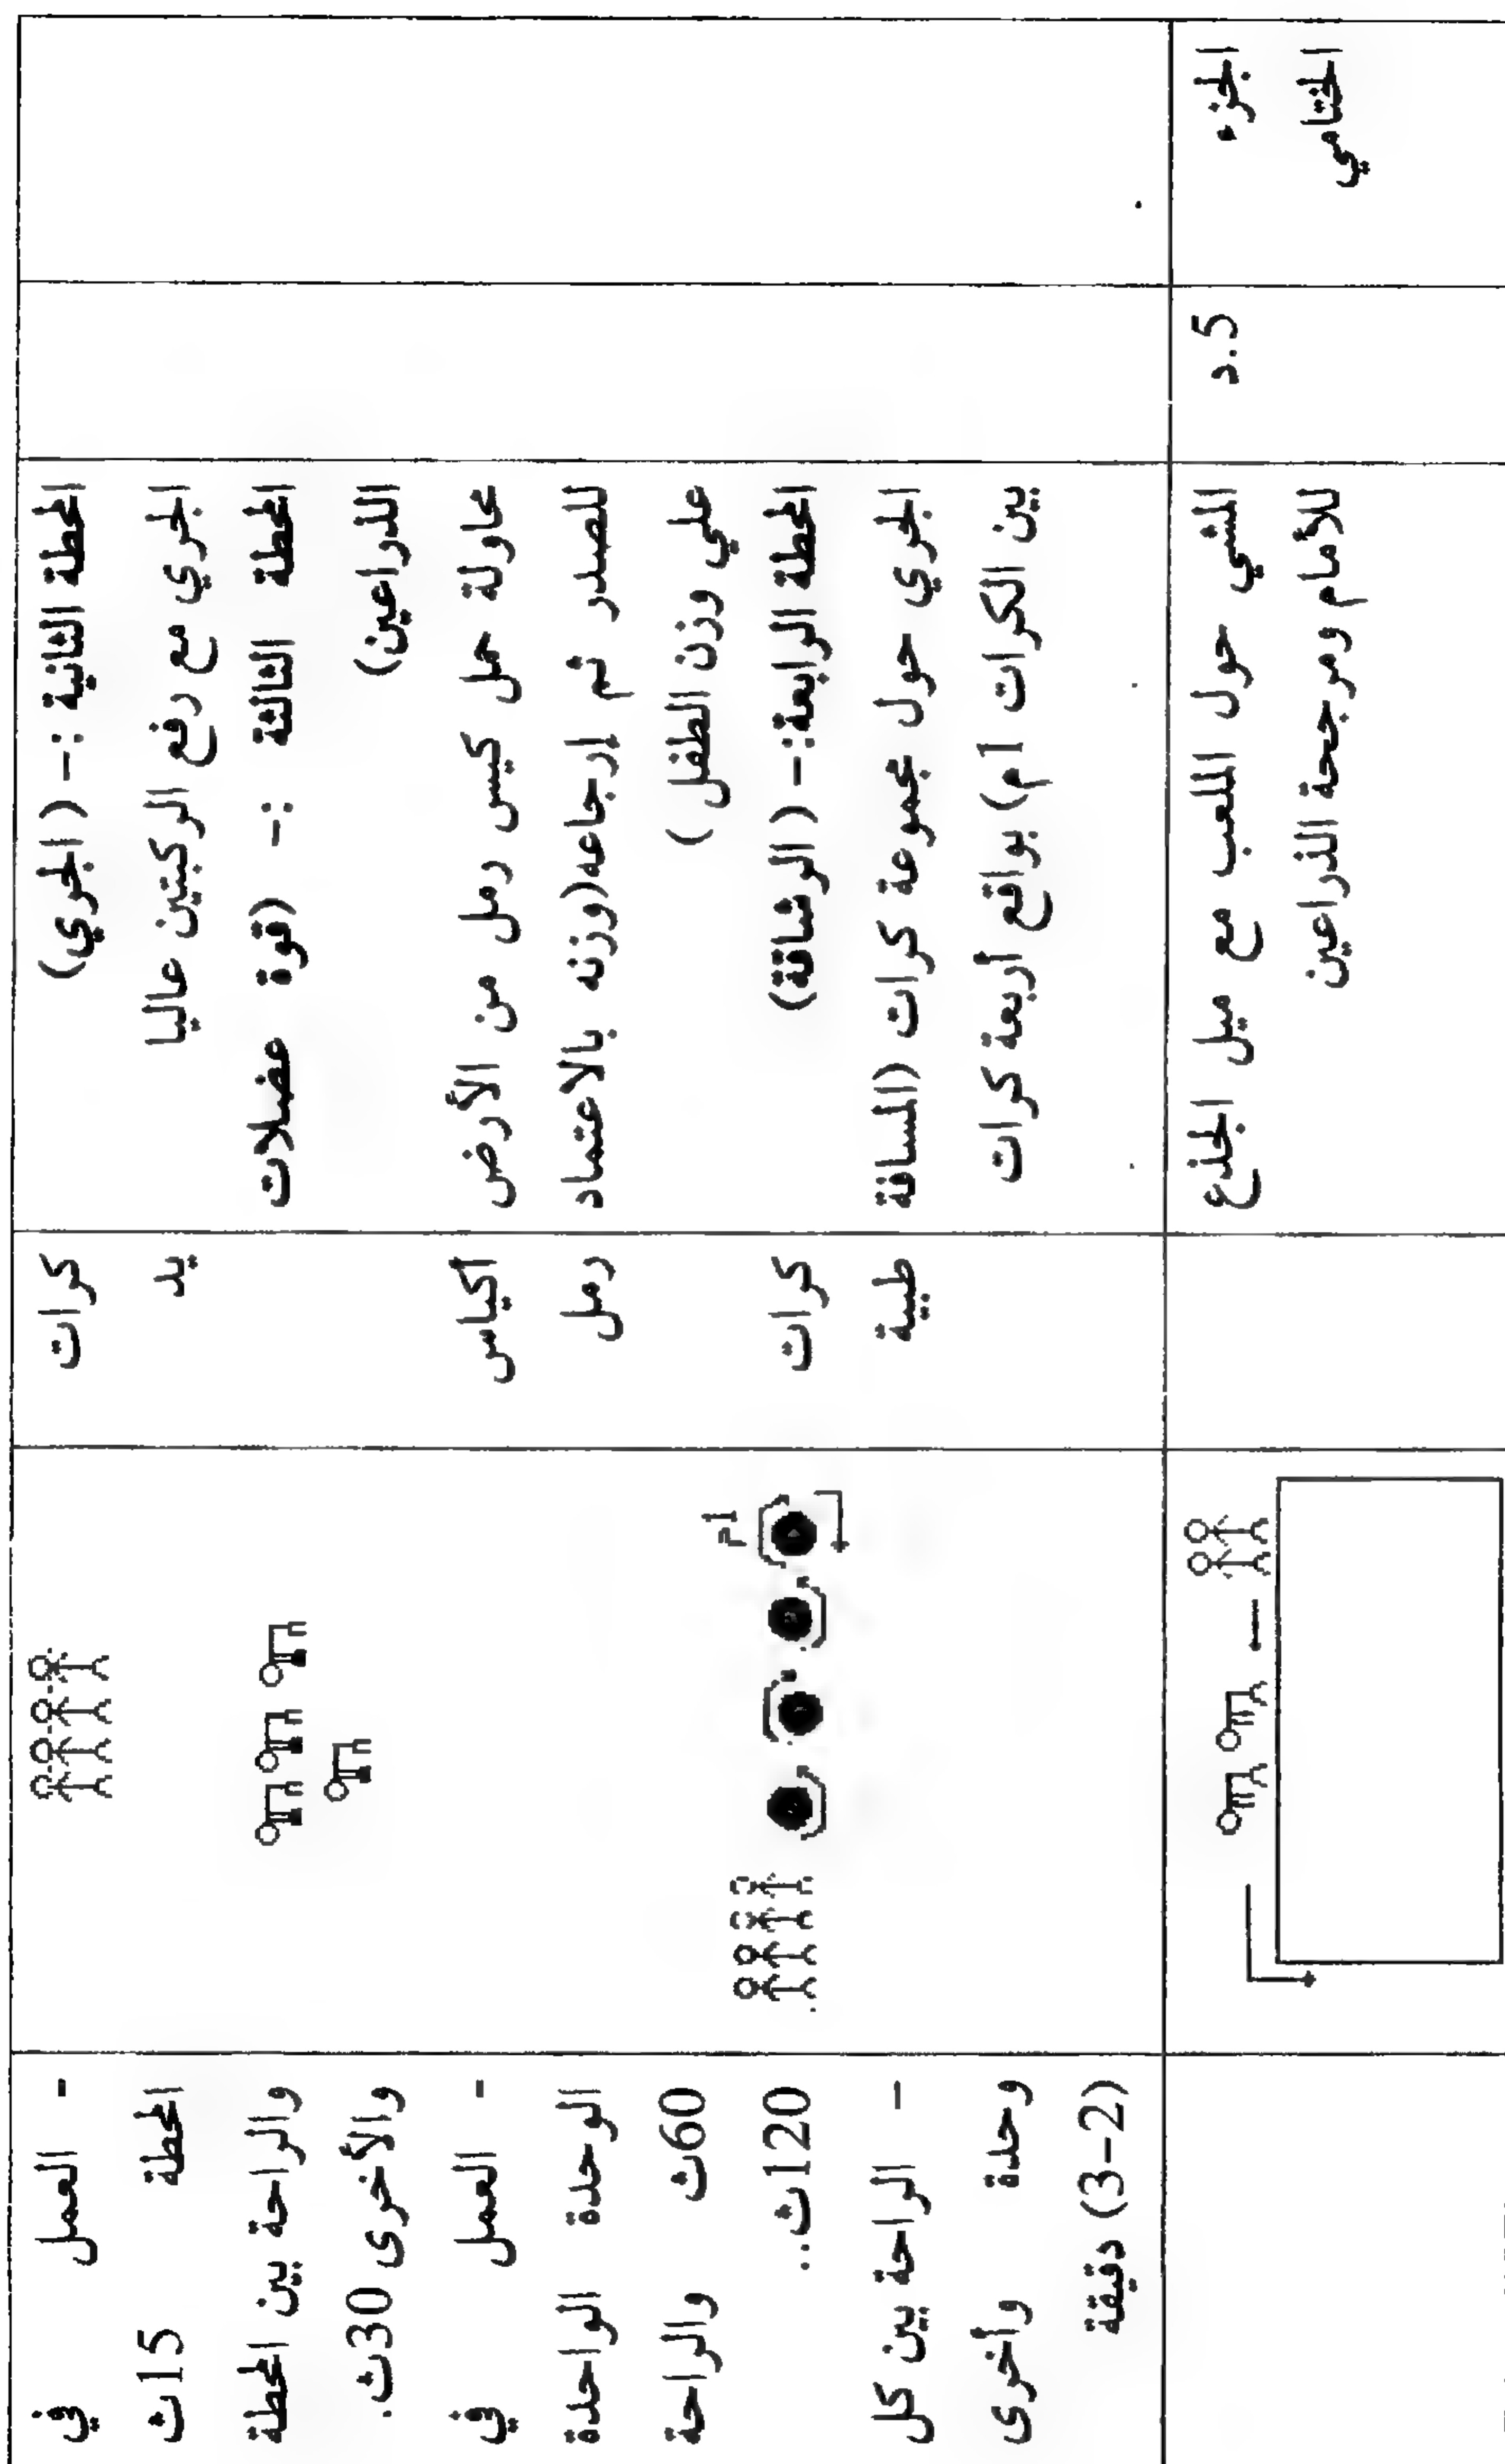 المحطة الثانية :- ( الجري)
الجري مع رفع الركبتين عاليا
المحطة الثالثة :- (قوة عضلات
الذراعين)
محاولة حمل كيس رمل من الأرض
للصدر ثم إرجاعه(وزنه بالاعتماد
علي وزن الطفل )
المحطة الرابعة:- ( الرشاقة)
الجري حول مجموعة كرات (المسافة
بين الكرات 1م) بواقع أربعة كرات
كرات
يد
أكياس
رمل
كرات
طبية
1م
- العمل في
المحطة 15ث
والراحة بين المحطة
والأخرى 30ث.
- العمل في
الوحدة الواحدة
60ث والراحة
120ث..
- الراحة بين كل
وحدة وأخرى
(2-3) دقيقة
الجزء
الختامي
5.د
المشي حول الملعب مع ميل الجذع
للأمام ومرجحة الذراعين